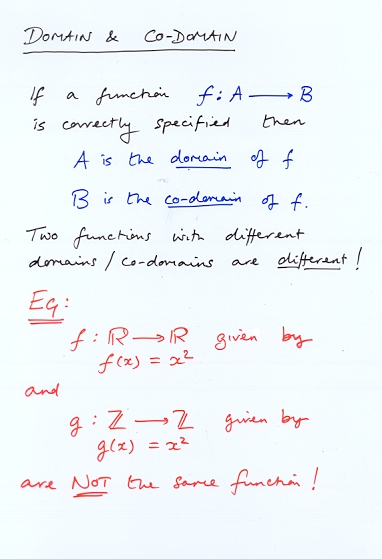 DOMAIN & CO-DOMAIN
If a function f: A ⟶ B
is correctly specified then
A is the domain of f
B is the co-domain of f.
Two functions with different
domains / co-domains are different!
EG:
f : ℝ ⟶ ℝ given by
f(x) = x²
and
g : ℤ ⟶ ℤ given by
g(x) = x²
are NOT the same function!